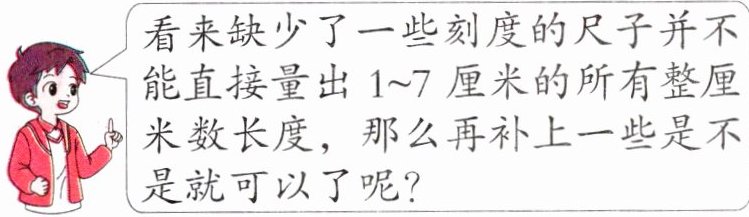 看来缺少了一些刻度的尺子并不
能直接量出 1~7 厘米的所有整厘
米数长度，那么再补上一些是不
是就可以了呢？